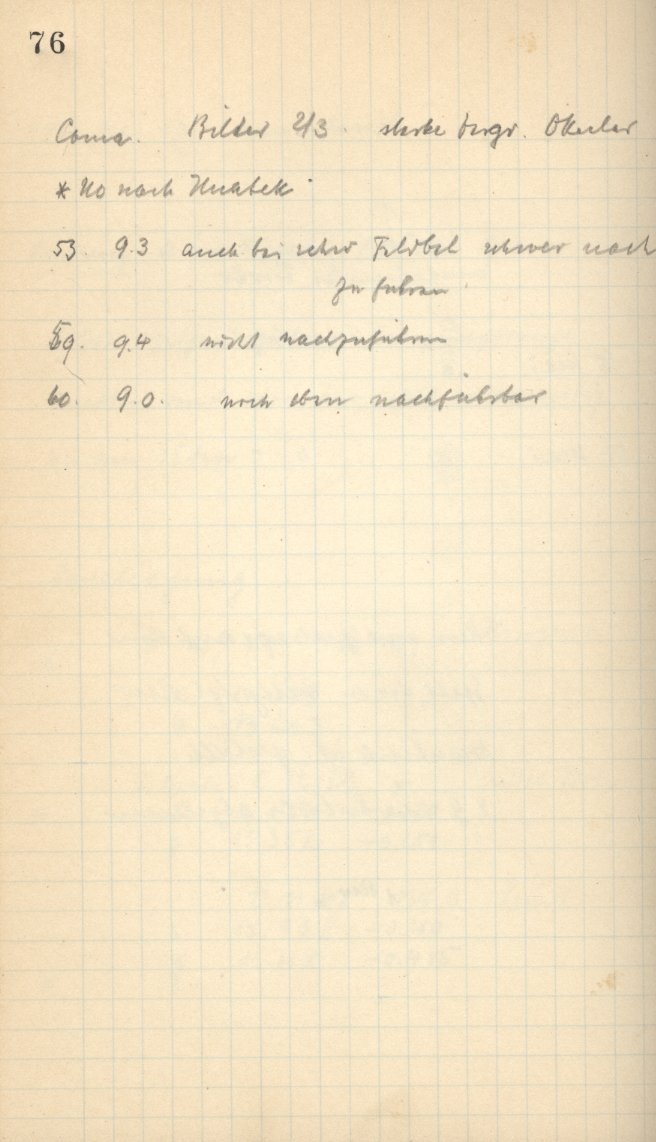 76
Coma. Bilder 2/3. starke Vergr. Okular
* No nach Hnatek
53. 9.3 auch bei schw Feldbel schwer nach
zu führen
59. 9.4 nicht nachzuführen
60. 9.0. noch eben nachführbar